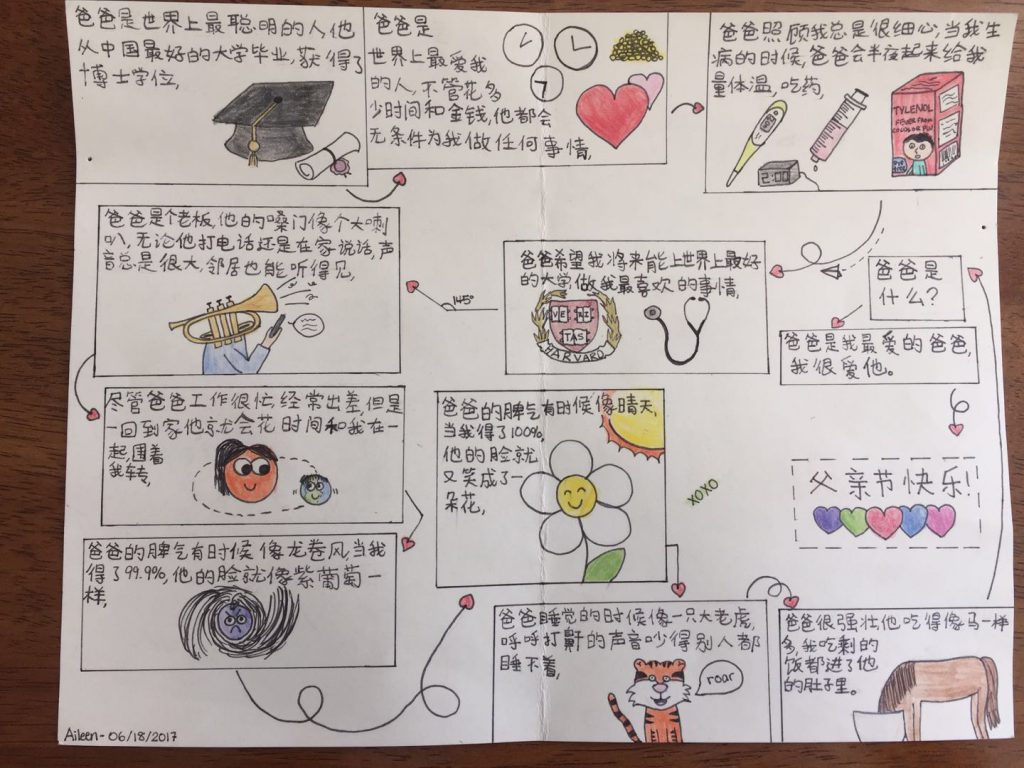 爸爸是世界上最聪明的人他
从中国最好的大学毕业,获得了
博士学位,
爸爸是
世界上最爱我
的人,不管花多
少时间和金钱,他都会
无条件为我做任何事情,
爸爸照顾我总是很细心,当我生
病的时候,爸爸会半夜起来给我
量体温,吃药,
TYLENOL
FEVER FROM
爸爸希望我将来能上世界上最好
的大学做我最喜欢的事情,
VE RI
TAS
HARVARD
145°
爸爸是个老板,他的嗓门像个大喇
叭,无论他打电话还是在家说话,声
音总是很大,邻居也能听得见,
尽管爸爸工作很忙,经常出差,但是
一回到家他就会花时间和我在一
起,围着
我转,
爸爸的脾气有时候像龙卷风,当我
得了99.9%,他的脸就像紫葡萄一
样,
爸爸的脾气有时候像晴天,
当我得了100%,
他的脸就
又笑成了一
朵花,
XOXO
爸爸睡觉的时候像一只大老虎,
呼呼打鼾的声音吵得别人都
睡不着,
roar
爸爸很强壮他,吃得像马一样
多,我吃剩的
饭都进了他
的肚子里。
爸爸是
什么?
爸爸是我最爱的爸爸,
我很爱他。
父亲节快乐!!
Aileen-06/18/2017